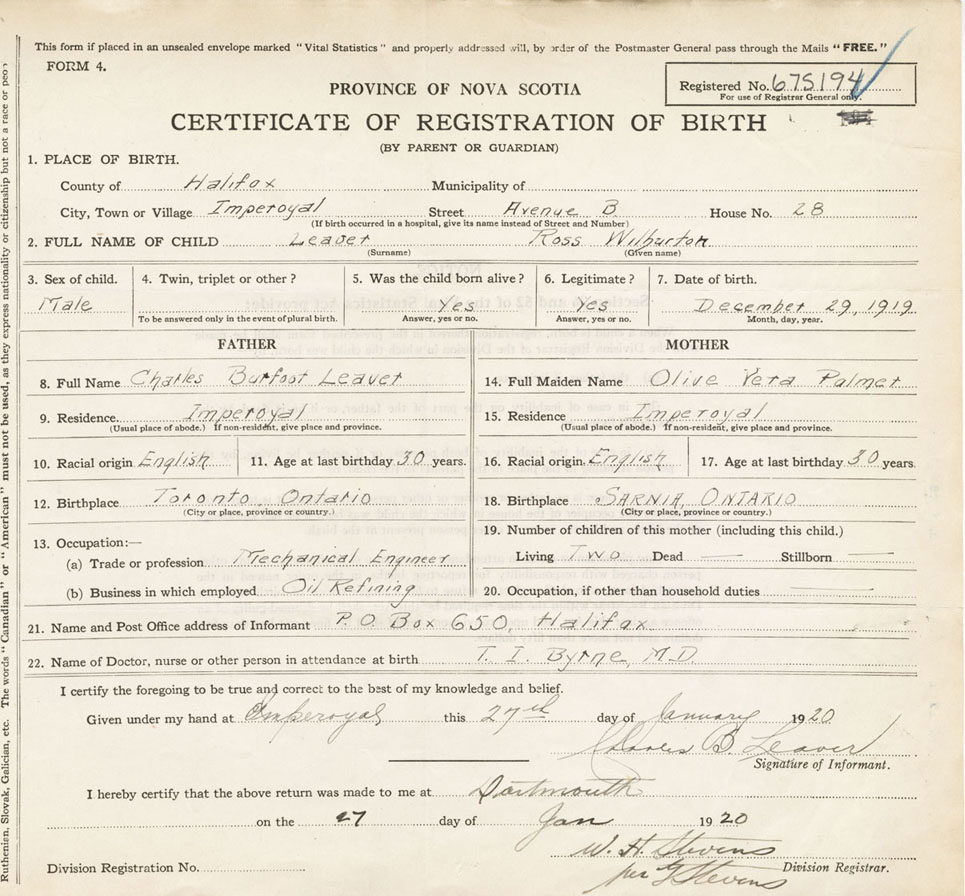 This form if placed in an unsealed envelope marked "Vital Statistics" and properly addressed will, by order of the Postmaster General pass through the Mails "FREE."
FORM 4.
Registered No. 675194
For use of Registrar General only.
PROVINCE OF NOVA SCOTIA
CERTIFICATE OF REGISTRATION OF BIRTH
(BY PARENT OR GUARDIAN)
1. PLACE OF BIRTH.
County of Halifax Municipality of
City, Town or Village Imperoyal Street Avenue B House No. 28
(If birth occurred in a hospital, give its name instead of Street and Number)
2. FULL NAME OF CHILD Leaver Ross Wilburton
(Surname) (Given name)
3. Sex of child. 4. Twin, triplet or other? 5. Was the child born alive? 6. Legitimate? 7. Date of birth.
Male Yes Yes December 29, 1919
To be answered only in the event of plural birth. Answer, yes or no. Answer, yes or no. Month, day, year.
FATHER MOTHER
8. Full Name Charles Burfoot Leaver 14. Full Maiden Name Olive Vera Palmer
9. Residence. Imperoyal 15. Residence Imperoyal
(Usual place of abode.) If non-resident, give place and province. (Usual place of abode.) If non-resident, give place and province.
10. Racial origin English 11. Age at last birthday 30 years. 16. Racial origin. English 17. Age at last birthday 30 years.
12. Birthplace Toronto, Ontario 18. Birthplace SARNIA, ONTARIO
(City or place, province or country.) (City or place, province or country.)
13. Occupation:— 19. Number of children of this mother (including this child.)
(a) Trade or profession Mechanical Engineer Living Two Dead — Stillborn —
(b) Business in which employed Oil Refining 20. Occupation, if other than household duties —
21. Name and Post Office address of Informant P.O. Box 650, Halifax
22. Name of Doctor, nurse or other person in attendance at birth T. I. Byrne, M.D.
I certify the foregoing to be true and correct to the best of my knowledge and belief.
Given under my hand at Imperoyal this 27th day of January 1920
Charles B. Leaver
Signature of Informant.
I hereby certify that the above return was made to me at Dartmouth
on the 27 day of Jan 1920
W. H. Stevens
per G Stevens
Division Registration No. Division Registrar.
Ruthenian, Slovak, Galician, etc. The words "Canadian" or "American" must not be used, as they express nationality or citizenship but not a race or